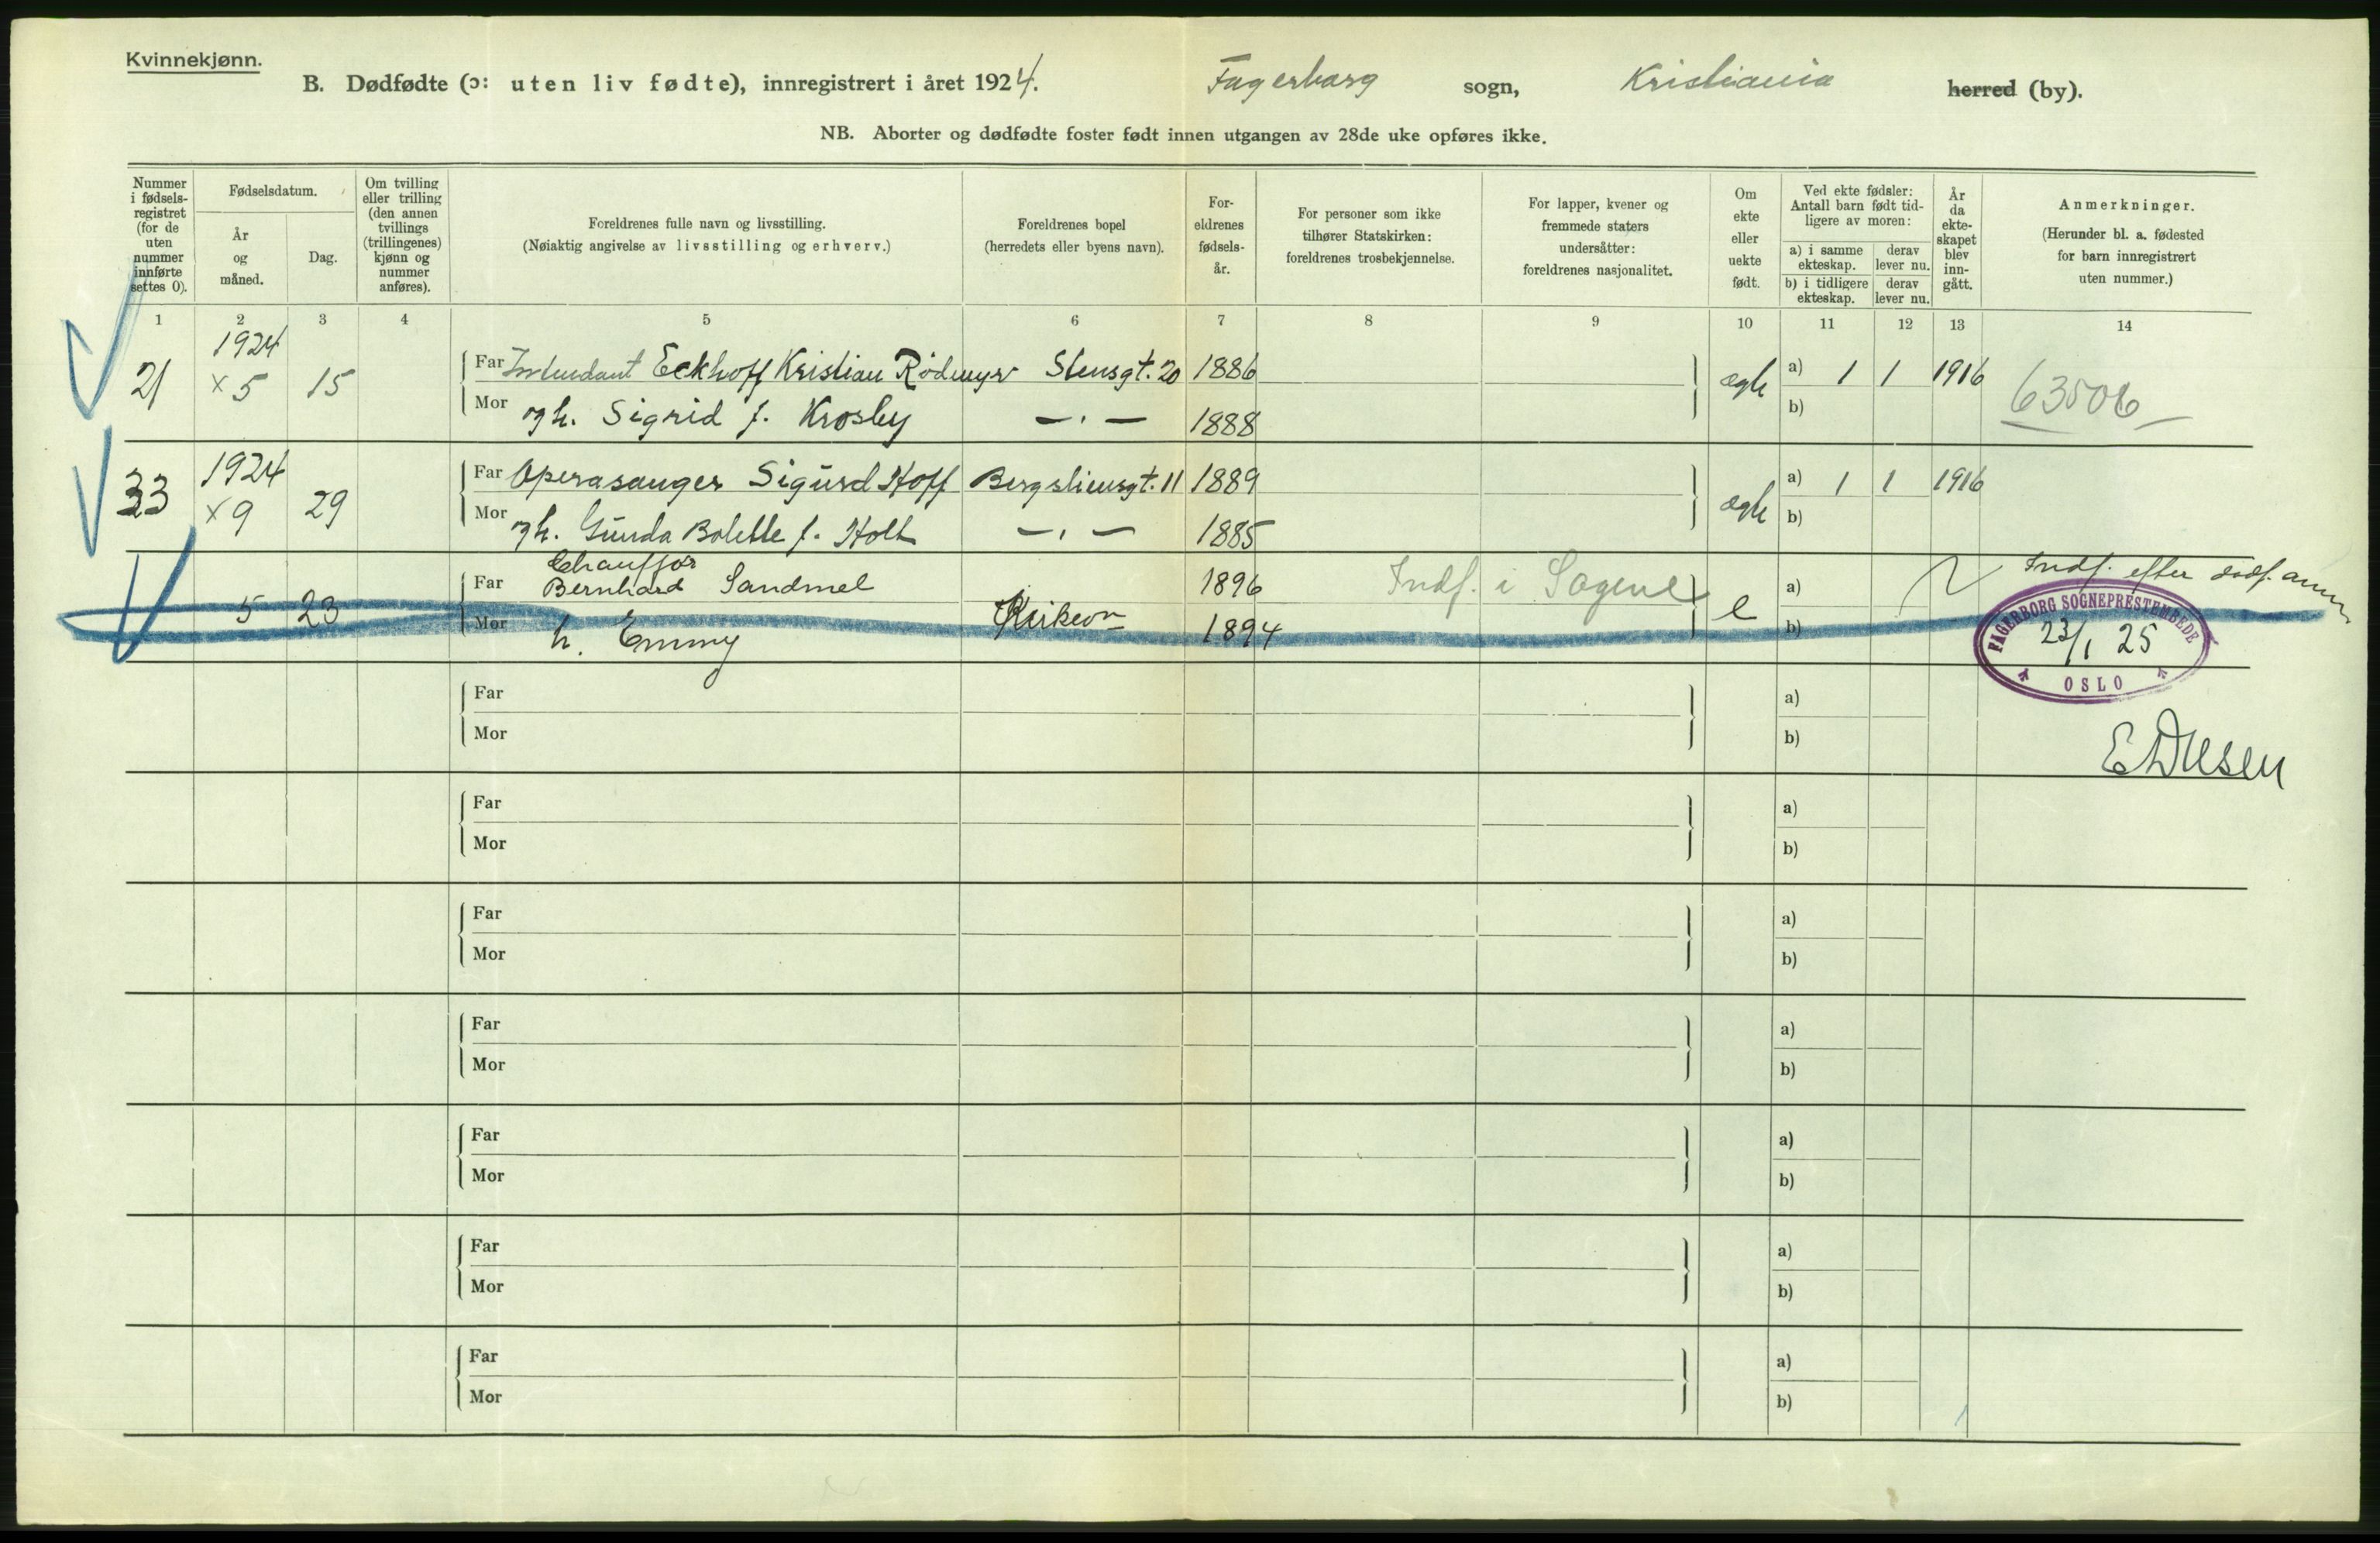 Kvinnekjønn.
B. Dødfødte (ɔ: uten liv fødte), innregistrert i året 1924. Fagerborg sogn, Kristiania herred (by).
NB. Aborter og dødfødte foster født innen utgangen av 28de uke opføres ikke.
Nummer i fødsels-registret (for de uten nummer innførte settes 0).
Fødselsdatum.
År og måned.
Dag.
Om tvilling eller trilling (den annen tvillings (trillingenes) kjønn og nummer anføres).
Foreldrenes fulle navn og livsstilling.
(Nøiaktig angivelse av livsstilling og erhverv.)
Foreldrenes bopel
(herredets eller byens navn).
For-eldrenes fødsels-år.
For personer som ikke
tilhører Statskirken:
foreldrenes trosbekjennelse.
For lapper, kvener og
fremmede staters
undersåtter:
foreldrenes nasjonalitet.
Om ekte eller uekte født.
Ved ekte fødsler:
Antall barn født tid-
ligere av moren:
a) i samme ekteskap.
derav lever nu.
b) i tidligere ekteskap.
derav lever nu.
År da ekte-skapet blev inn-gått.
Anmerkninger.
(Herunder bl. a. fødested
for barn innregistrert
uten nummer.)
1 2 3 4 5 6 7 8 9 10 11 12 13 14
1924
21 × 5 15 Far Intendant Eckhoff Kristian Rödmyr Stensgt. 20 1886 ægte a) 1 1 1916 63506
Mor og h. Sigrid f. Krosby — . — 1888 b)
1924
33 × 9 29 Far Operasanger Sigurd Hoff Bergsliensgt. 11 1889 ægte a) 1 1 1916
Mor og h. Gunda Bolette f. Holt — . — 1885 b)
Chauffør
Far Bernhard Sandmel 1896 Indf. i Sagene a) Indf. efter dødf. anm
5 23 Mor h. Emmy Kirkevn 1894 e b)
FAGERBORG SOGNEPRESTEMBEDE
23/1 25
OSLO
Far a)
Mor b)
Far a)
Mor b)
Far a)
Mor b)
Far a)
Mor b)
Far a)
Mor b)
Far a)
Mor b)
Far a)
Mor b)